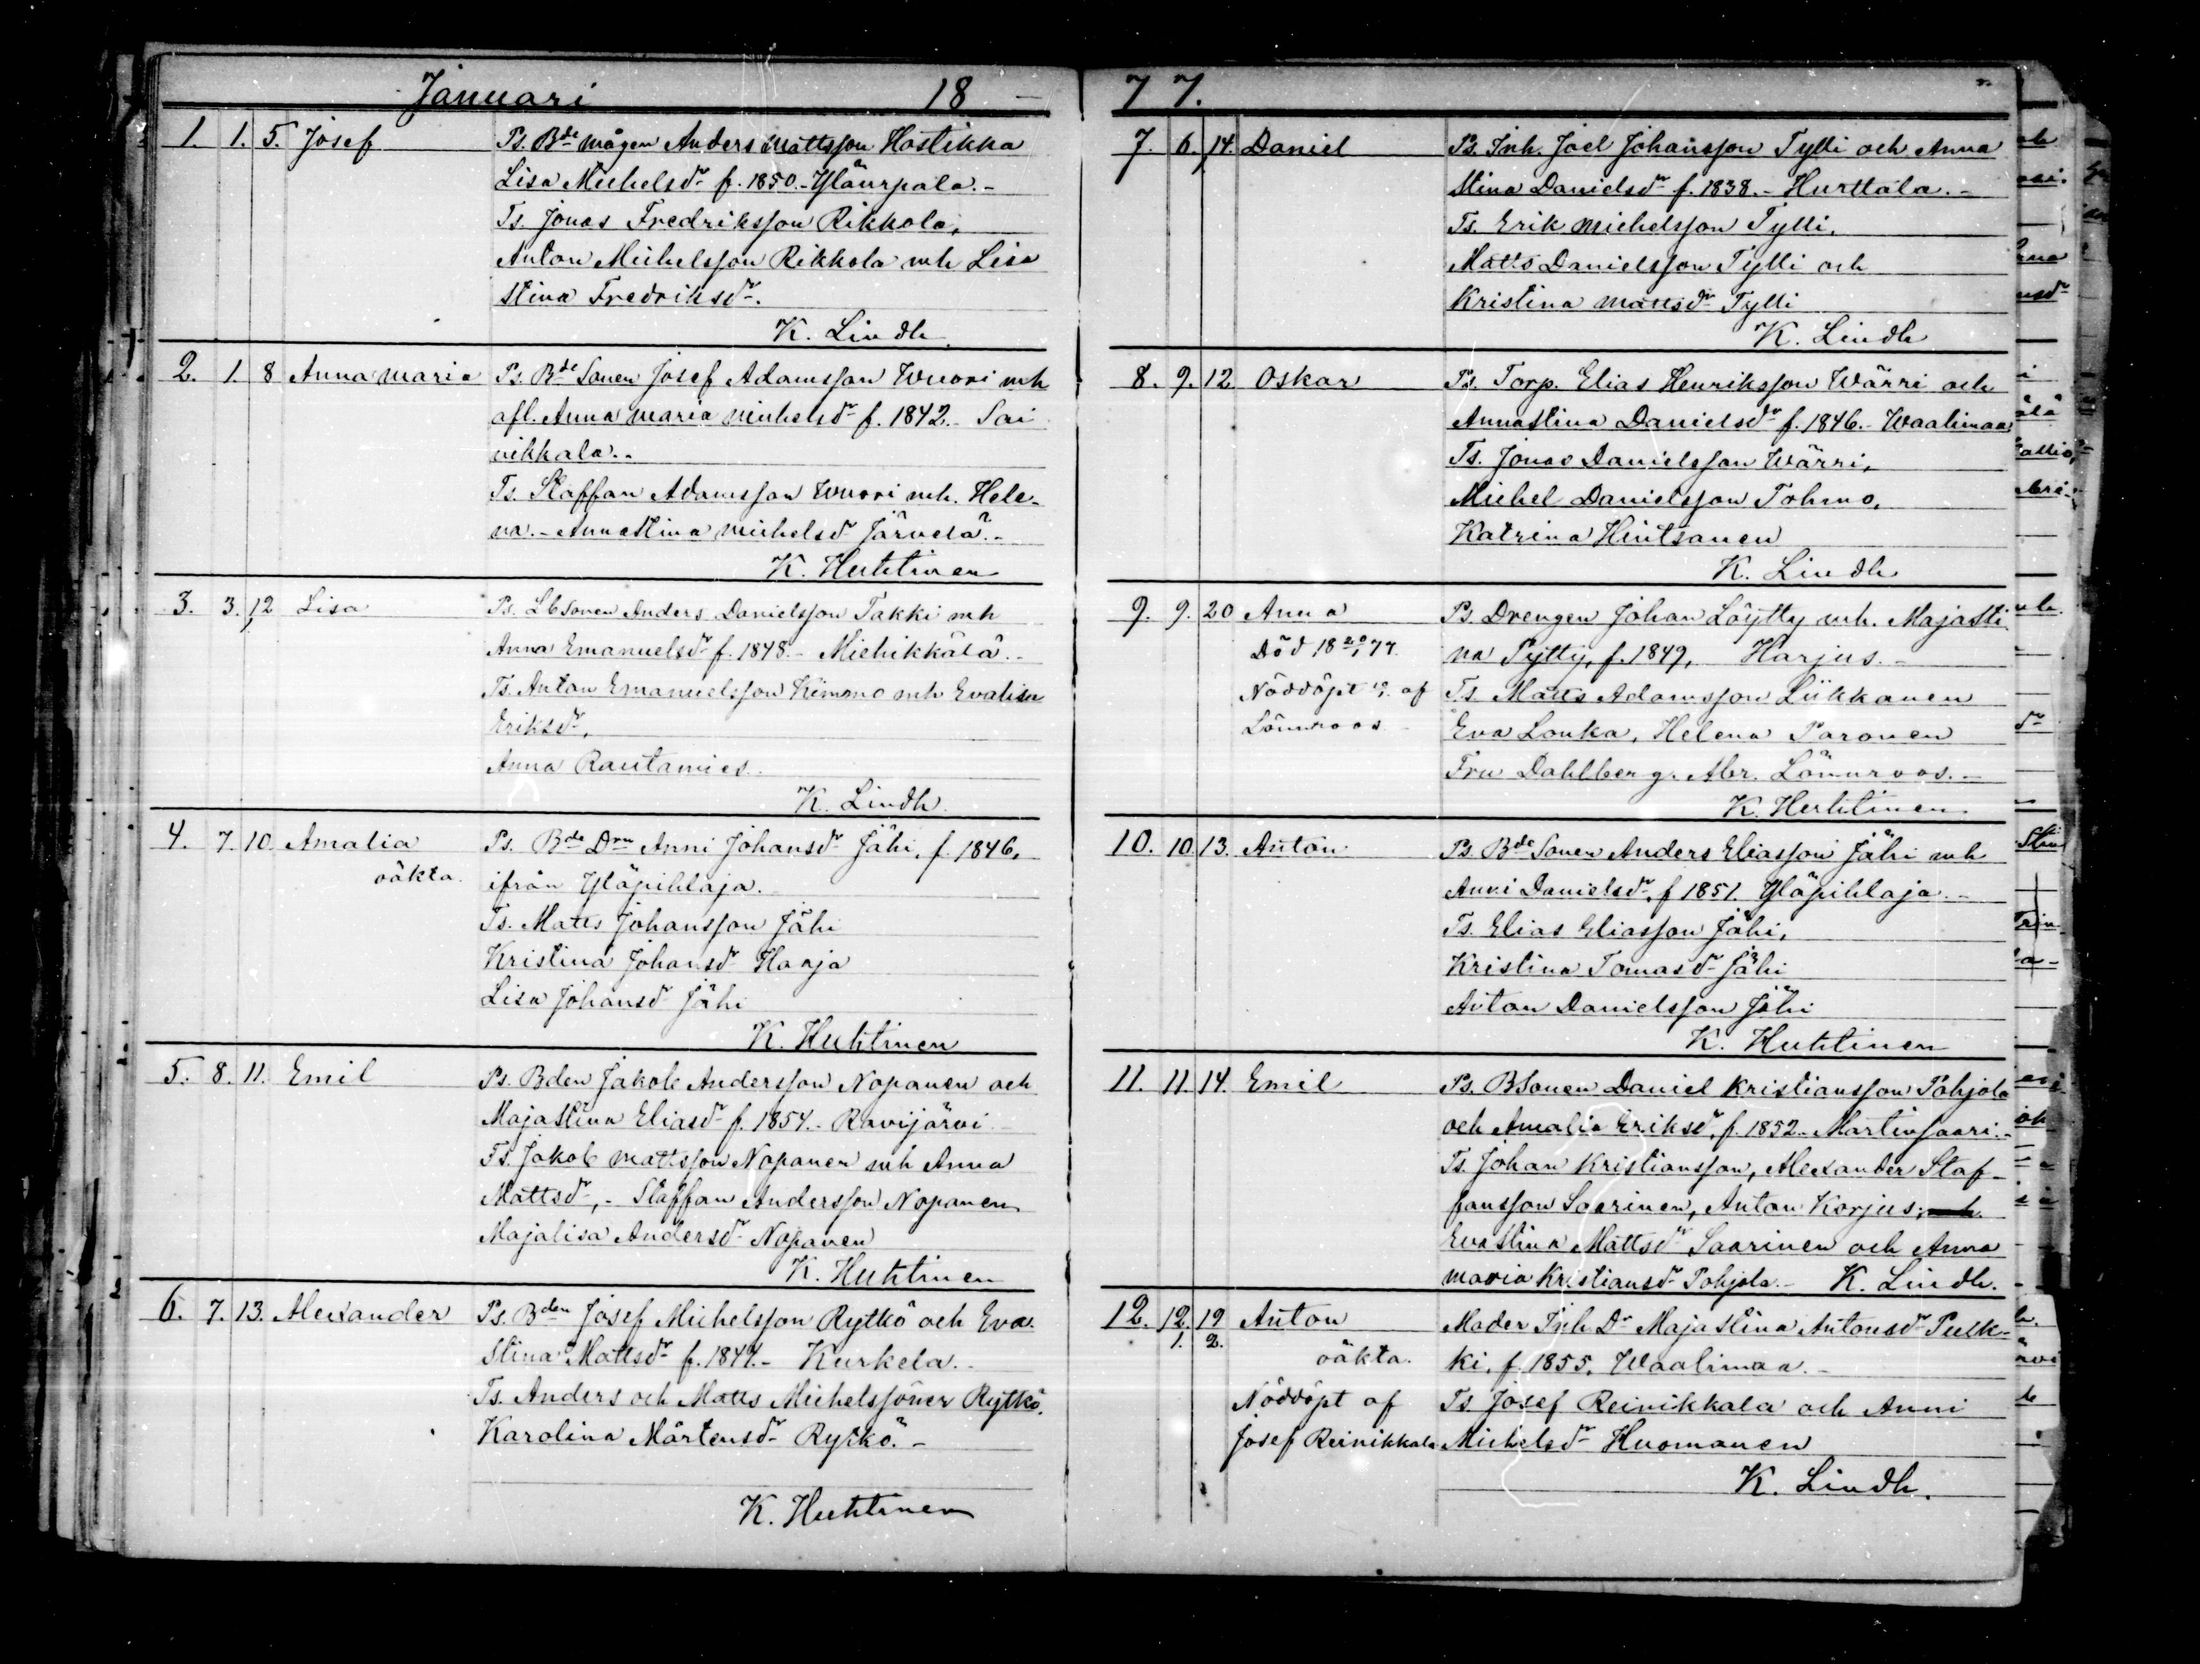 Januari 18 —
1. 1. 5. Josef Ps. Bde mågen Anders Mattsson Hostikka
Lisa Michelsdr f. 1850. - Yläurpala. -
Ts. Jonas Fredriksson Rikkola,
Anton Michelsson Rikkola mh Lisa
Stina Fredriksdr.
K. Lindh.
2. 1. 8 Anna Maria Ps. Bde Sonen Josef Adamsson Wuori mh
afl. Anna Maria Michelsdr f. 1842. - Sai
vikkala. -
Ts. Staffan Adamsson Wuori mh. Hele-
na. - Annastina Michelsd Järvelä. -
K. Huhtinen
3. 3. 12 Lisa Ps. Lbsonen Anders Danielsson Takki mh
Anna Emanuelsdr f. 1848. - Miehikkälä. -
Ts. Anton Emanuelsson Kimmo mh Evalisa
Eriksdr,
Anna Rautamies.
K. Lindh.
4. 7. 10. Amalia Ps. Bde Drn Anni Johansdr Jähi, f. 1846,
oäkta. ifrån Yläpihlaja.
Ts. Matts Johansson Jähi
Kristina Johansdr Harja
Lisa Johansdr Jähi
K. Huhtinen
5. 8. 11. Emil Ps. Bden Jakob Andersson Nopanen och
Majastina Eliasdr f. 1854. - Ravijärvi -
Ts. Jakob Mattsson Nopanen mh Anna
Mattsdr, - Staffan Andersson Nopanen
Majalisa Andersdr Nopanen
K. Huhtinen
6. 7. 13. Alexander Ps. Bden Josef Michelsson Rytkö och Eva
Stina Mattsdr f. 1844. - Kurkela. -
Ts. Anders och Matts Michelssöner Rytkö.
Karolina Mårtensdr Rytkö. -
K. Huhtinen
77.
7. 6. 14. Daniel Ps. Inh. Joel Johansson Tylli och Anna
Stina Danielsdr f. 1838. - Hurttala. -
Ts. Erik Michelsson Tylli,
Matts Danielsson Tylli och
Kristina Mattsdr Tylli
K. Lindh
8. 9. 12 Oskar Ps. Torp. Elias Henriksson Wärri och
Annastina Danielsdr f. 1846. - Waalimaa
Ts. Jonas Danielsson Wärri,
Michel Danielsson Tohmo,
Katrina Hintsanen
K. Lindh
9. 9. 20 Anna Ps. Drengen Johan Löytty mh. Majasti
Död 18 20/1 77. na Pytty, f. 1849, Harjus. -
Nöddöpt af Ts. Matts Adamsson Liikkanen
Lönnroos Eva Louka, Helena Paronen
Fru Dahlberg. Abr. Lönnroos. -
K. Huhtinen
10. 10. 13. Anton Ps. Bde Sonen Anders Eliasson Jähi mh
Anni Danielsdr, f 1851. Yläpihlaja. -
Ts. Elias Eliasson Jähi,
Kristina Tomasdr Jähi
Anton Danielsson Jähi
K. Huhtinen
11. 11. 14. Emil Ps. BSonen Daniel Kristiansson Pohjola
och Amalia Eriksdr, f. 1852 - Martinsaari. -
Ts. Johan Kristiansson, Alexander Staf-
fansson Saarinen, Anton Korjus,
Evastina Mattsdr Saarinen och Anna
Maria Kristiansdr Pohjola. - K. Lindh.
12. 12. 19 Anton Moder Inh Dr Majastina Antonsdr Pulk-
1. 2. oäkta. ki, f. 1855. Waalimaa. -
Nöddöpt af Ts Josef Reinikkala och Anni
Josef Reinikkala Michelsdr Huomanen
K. Lindh.